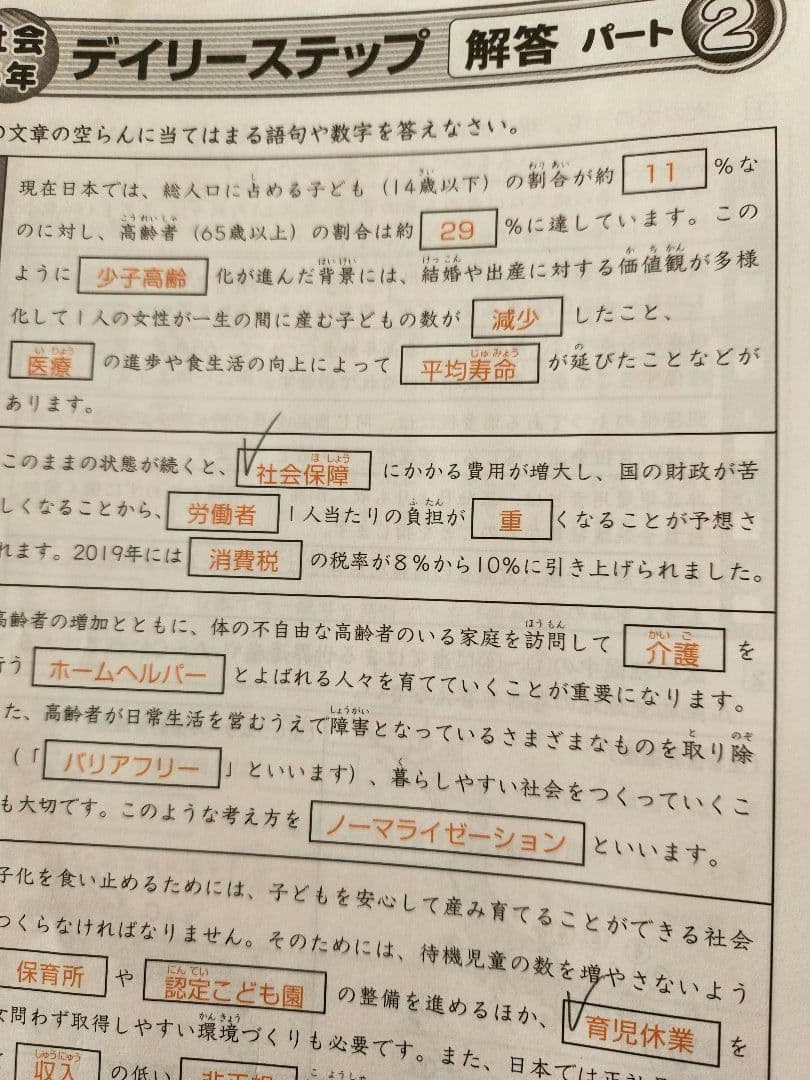 社会
年
デイリーステップ 解答 パート 2
の文章の空らんに当てはまる語句や数字を答えなさい。
現在日本では、総人口に占める子ども（14歳以下）の割合が約 11 ％な
のに対し、高齢者（65歳以上）の割合は約 29 ％に達しています。この
ように 少子高齢 化が進んだ背景には、結婚や出産に対する価値観が多様
化して1人の女性が一生の間に産む子どもの数が 減少 したこと、
医療 の進歩や食生活の向上によって 平均寿命 が延びたことなどが
あります。
このままの状態が続くと、 社会保障 にかかる費用が増大し、国の財政が苦
しくなることから、 労働者 1人当たりの負担が 重 くなることが予想さ
れます。2019年には 消費税 の税率が8％から10％に引き上げられました。
高齢者の増加とともに、体の不自由な高齢者のいる家庭を訪問して 介護 を
行う ホームヘルパー とよばれる人々を育てていくことが重要になります。
た、高齢者が日常生活を営むうえで障害となっているさまざまなものを取り除
（「 バリアフリー 」といいます）、暮らしやすい社会をつくっていくこ
も大切です。このような考え方を ノーマライゼーション といいます。
子化を食い止めるためには、子どもを安心して産み育てることができる社会
つくらなければなりません。そのためには、待機児童の数を増やさないよう
保育所 や 認定こども園 の整備を進めるほか、 育児休業 を
女問わず取得しやすい環境づくりも必要です。また、日本では正社
収入 の低い 非正規